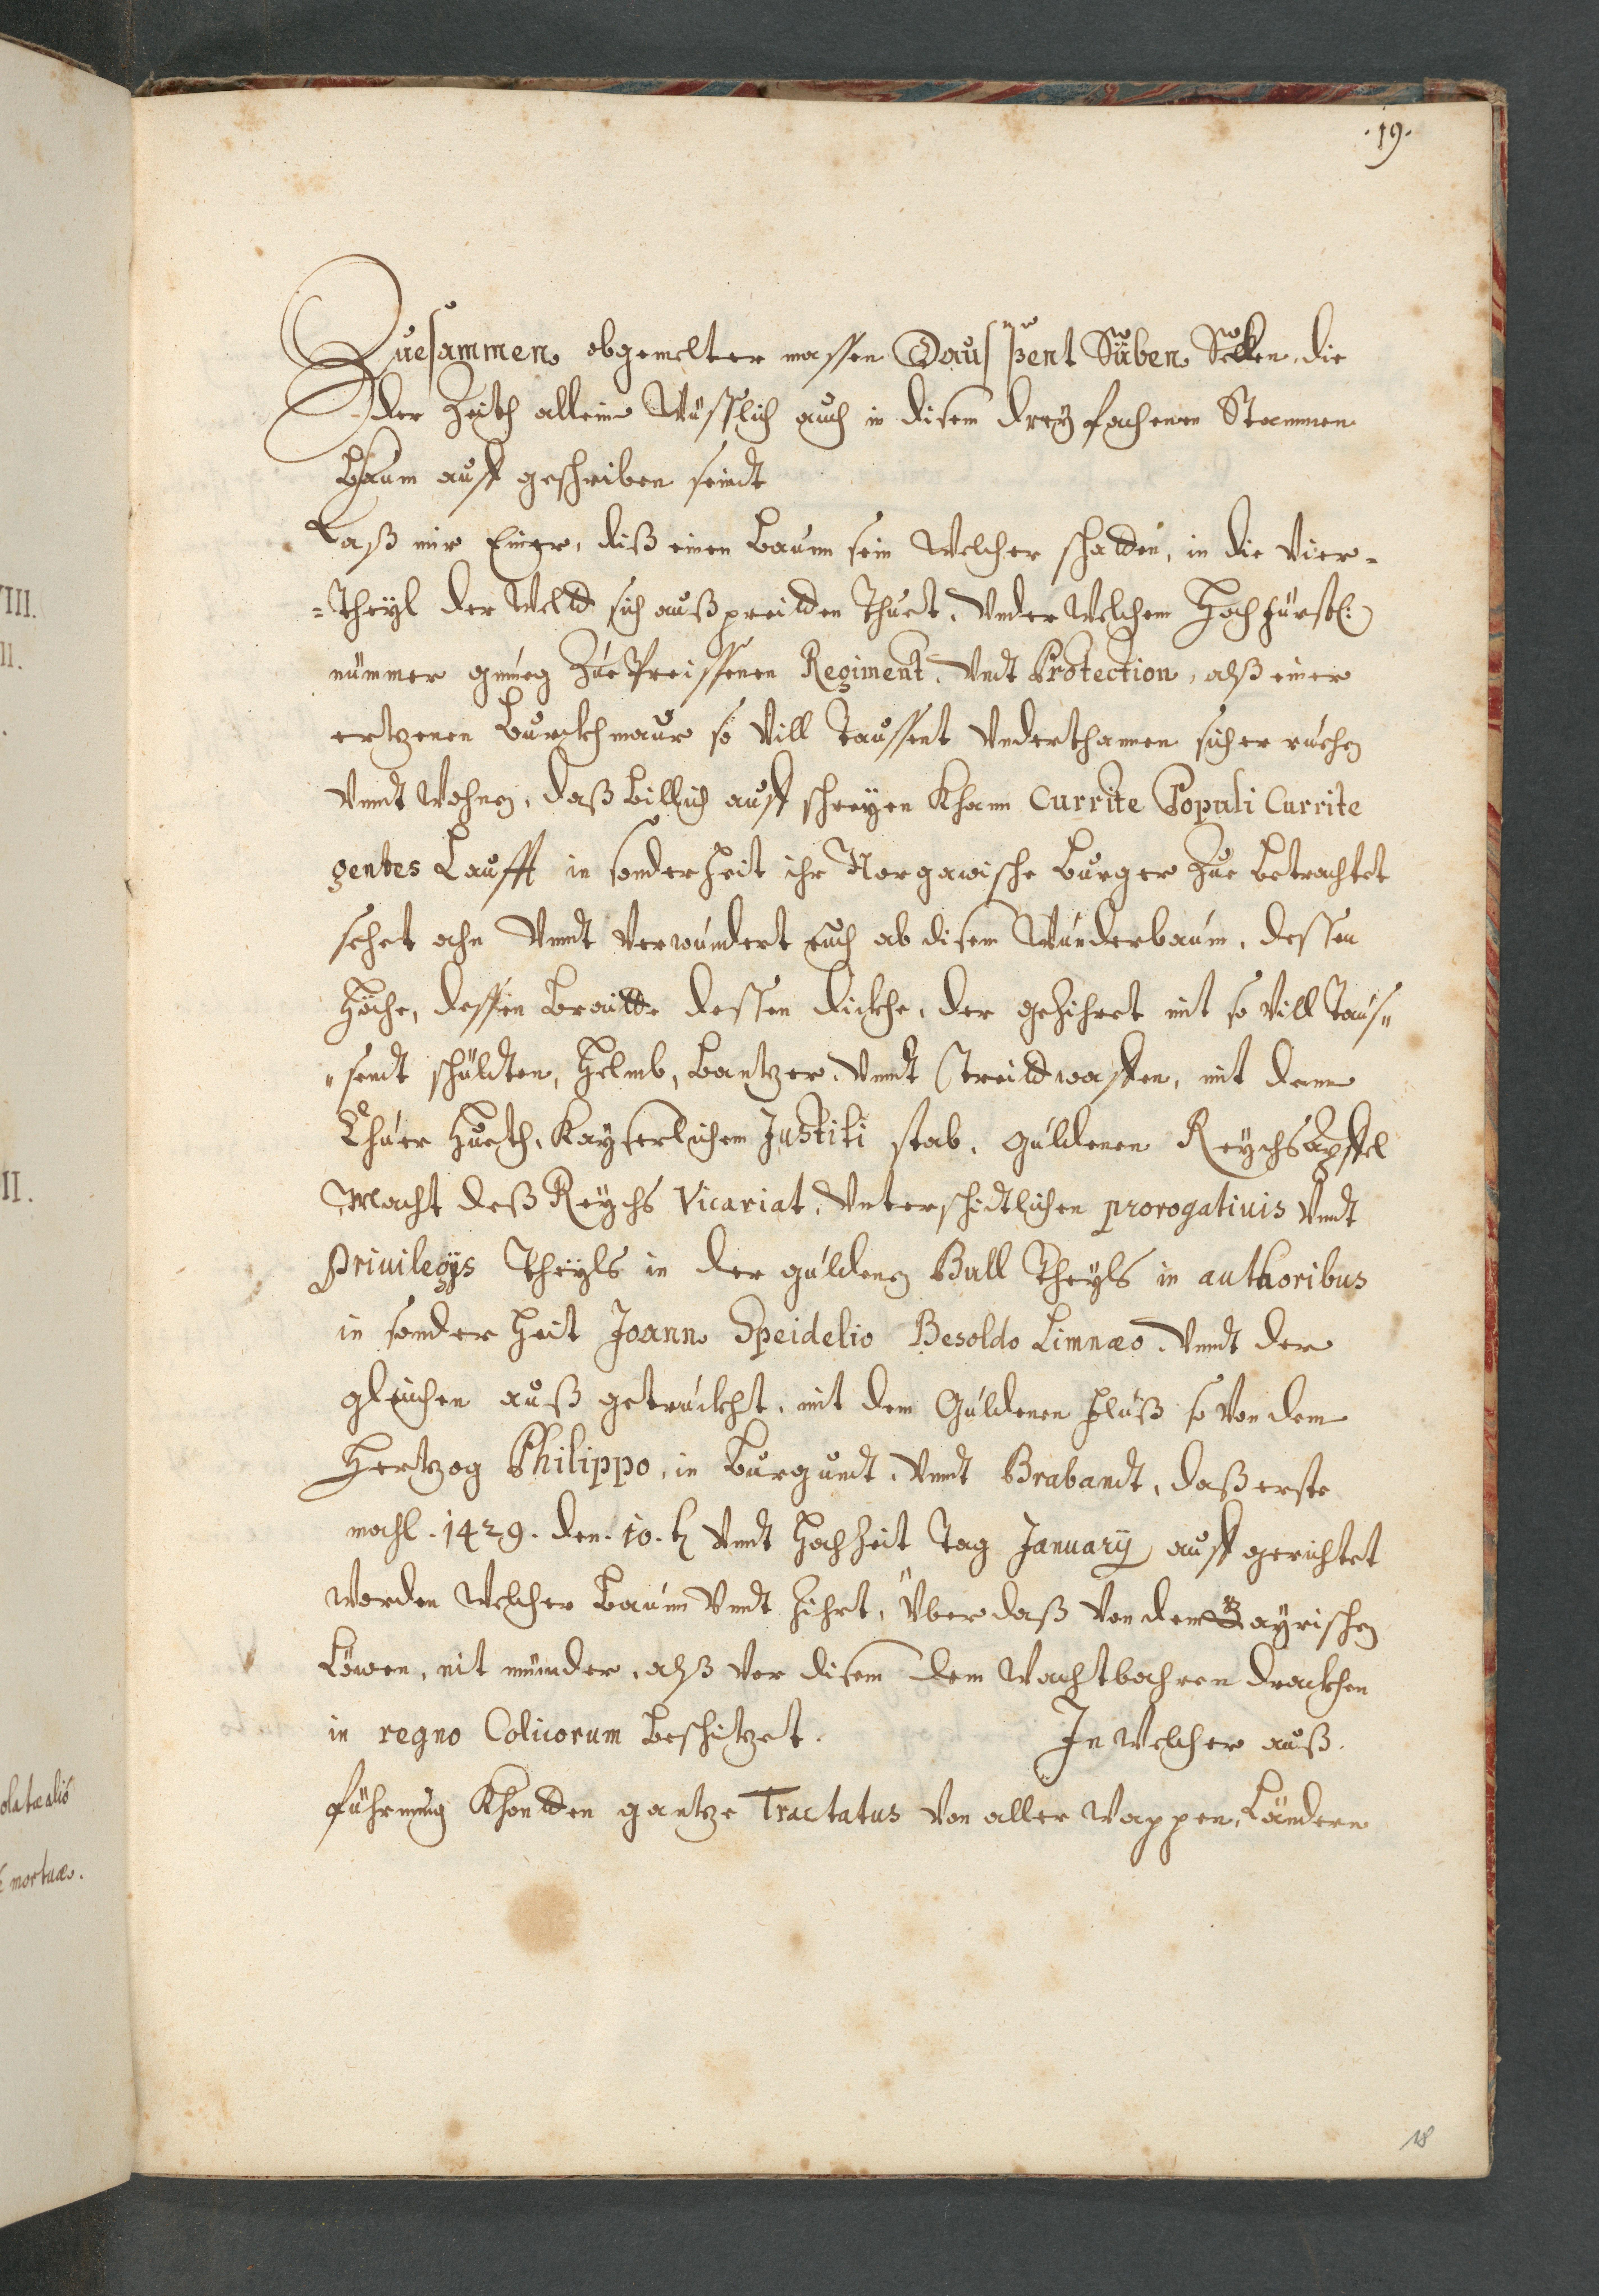 .19.
Zuesammen obgemelter massen Daussent Süben Selen, die
der Zeith allein Wüsslich auch in disem dreyfachenen Stammen
Baum auff geschriben seindt
Laß mir Einer, diß einen Baum sein Welcher schadden, in die Vier=
=theyl der Weltd sich außpreidden Thuet. Vnder Welchem Hochfürstl:
nümmer gnueg Zue Preissenen Regiment, Vndt Protection, alß einer
ertzenen Burckhmaur so Vill Taussent Vnderthannen sicher ruehen
Vnndt Wohnen, daß billich auff schreyen Khann Currite Populi Currite
gentes Laufft in sonderheit ihr Norgawische Burger Zue betrachtet
sehet ahn Vnndt Verwundert euch ab disem Wunderbaum, dessen
Höche, dessen Braidde dessen dickhe, der geZihret mit so Vill Taus"
"sendt schüldten, Helmb, bantzer, Vnndt Streidwaffen, mit dem
Chuer Hueth, Kayserlichem Justiti stab, guldenen Reychsäpffel
Macht deß Reychs Vicariat, Vnterschidtlichen prorogatiuis Vndt
Priuilegijs Theyls in der guldenen Bull Theyls in authoribus
in sonder heit Joann Speidelio Besoldo Limnæo, Vnndt der
gleichen auß getruckht, mit dem Guldenen Fluß so Von dem
Hertzog Philippo, in Burgundt, Vnndt Brabandt, daß erste
mahl .1429. den .10. Vnndt HochZeit Tag January auff gerichtet
Worden Welcher Baum Vnndt Zihrt, Vber daß Von dem Bayrischen
Löwen, nit münder, alß Vor disem dem Wachtbahren drackhen
in regno Colicorum beschitzet. In Welcher auß
führnung Khondden gantze Tractatus Von aller Wappen, Ländern
18
VIII.
II.
II.
mortuæ.